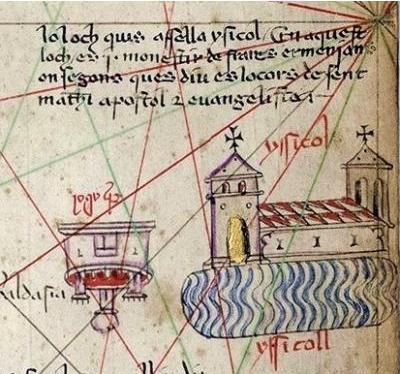 lo loch quis apella ysicol En aquest
loch es · j · monestir de frares ermenians
on segons ques diu es lo cors de sent
mathi apostol ⁊ evangelista
ysicol
yssicoll